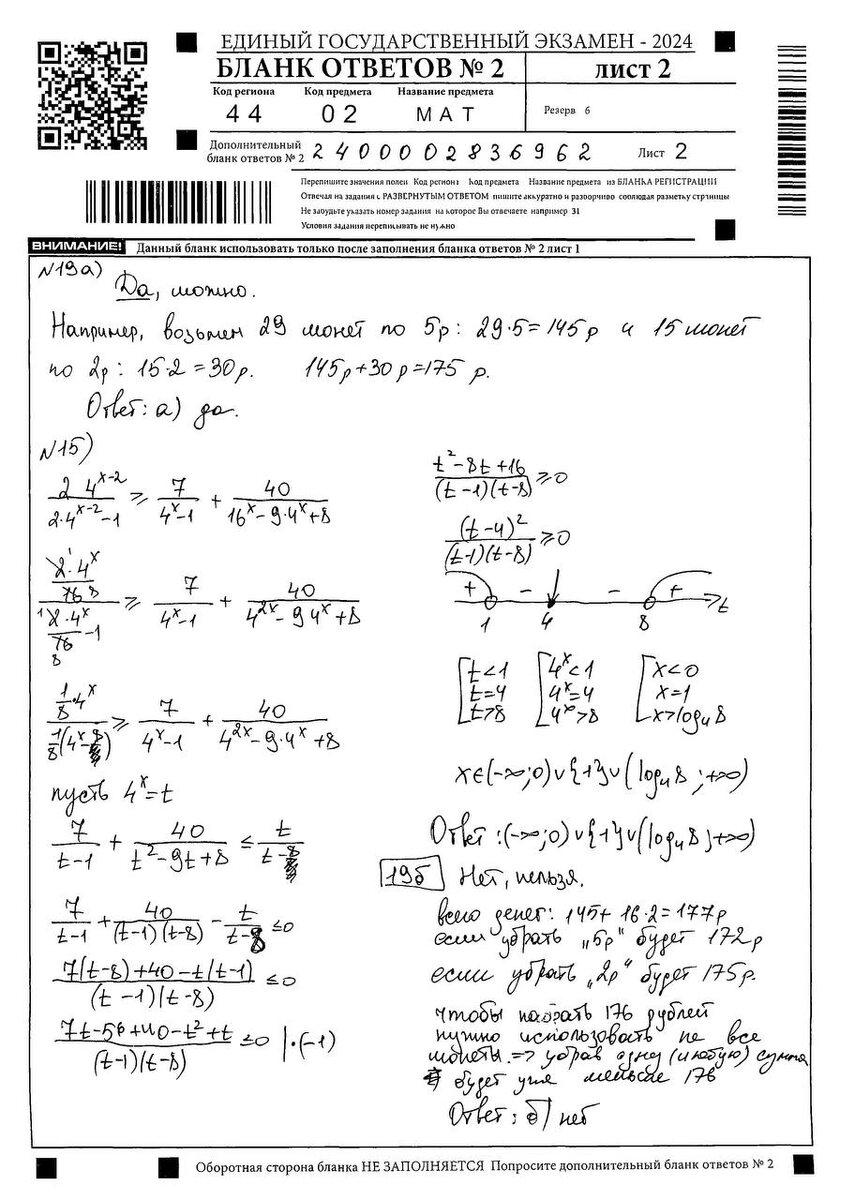 ЕДИНЫЙ ГОСУДАРСТВЕННЫЙ ЭКЗАМЕН - 2024
БЛАНК ОТВЕТОВ № 2
лист 2
Код региона Код предмета Название предмета
44 02 МАТ
Резерв 6
Дополнительный бланк ответов № 2 2400002836962 Лист 2
Перепишите значения полей Код региона Код предмета Название предмета из БЛАНКА РЕГИСТРАЦИИ
Отвечая на задания с РАЗВЕРНУТЫМ ОТВЕТОМ пишите аккуратно и разборчиво соблюдая разметку страницы
Не забудьте указать номер задания на которое Вы отвечаете например 31
Условия задания переписывать не нужно
ВНИМАНИЕ! Данный бланк использовать только после заполнения бланка ответов № 2 лист 1
№19а)
Да, можно.
Например, возьмем 29 монет по 5р: 29·5=145р и 15 монет
по 2р: 15·2=30р. 145р+30р=175 р.
Ответ: а) да.
№15)
2 4^(x-2)/(2·4^(x-2)-1) ⩾ 7/(4^x-1) + 40/(16^x-9·4^x+8)
(2·4^x/16)/(2·4^x/16-1) ⩾ 7/(4^x-1) + 40/(4^(2x)-9·4^x+8)
(1/8·4^x)/(1/8(4^x-8)) ⩾ 7/(4^x-1) + 40/(4^(2x)-9·4^x+8)
пусть 4^x=t
7/(t-1) + 40/(t²-9t+8) ≤ t/(t-8)
7/(t-1) + 40/((t-1)(t-8)) - t/(t-8) ≤0
(7(t-8)+40-t(t-1))/((t-1)(t-8)) ≤0
(7t-56+40-t²+t)/((t-1)(t-8)) ≤0 |·(-1)
(t²-8t+16)/((t-1)(t-8)) ⩾0
(t-4)²/((t-1)(t-8)) ⩾0
+ - - + t
1 4 8
[t<1 [4^x<1 [x<0
t=4 4^x=4 x=1
t>8 4^x>8 x>log₄8
x∈(-∞;0)∪{1}∪(log₄8;+∞)
Ответ:(-∞;0)∪{1}∪(log₄8;+∞)
19б Нет, нельзя.
всего денег: 145+16·2=177р
если убрать „5р" будет 172р
если убрать „2р" будет 175р.
чтобы набрать 176 рублей
нужно использовать не все
монеты.=> убрав одну (любую) сумма
будет уже меньше 176
Ответ: б) нет
Оборотная сторона бланка НЕ ЗАПОЛНЯЕТСЯ Попросите дополнительный бланк ответов № 2